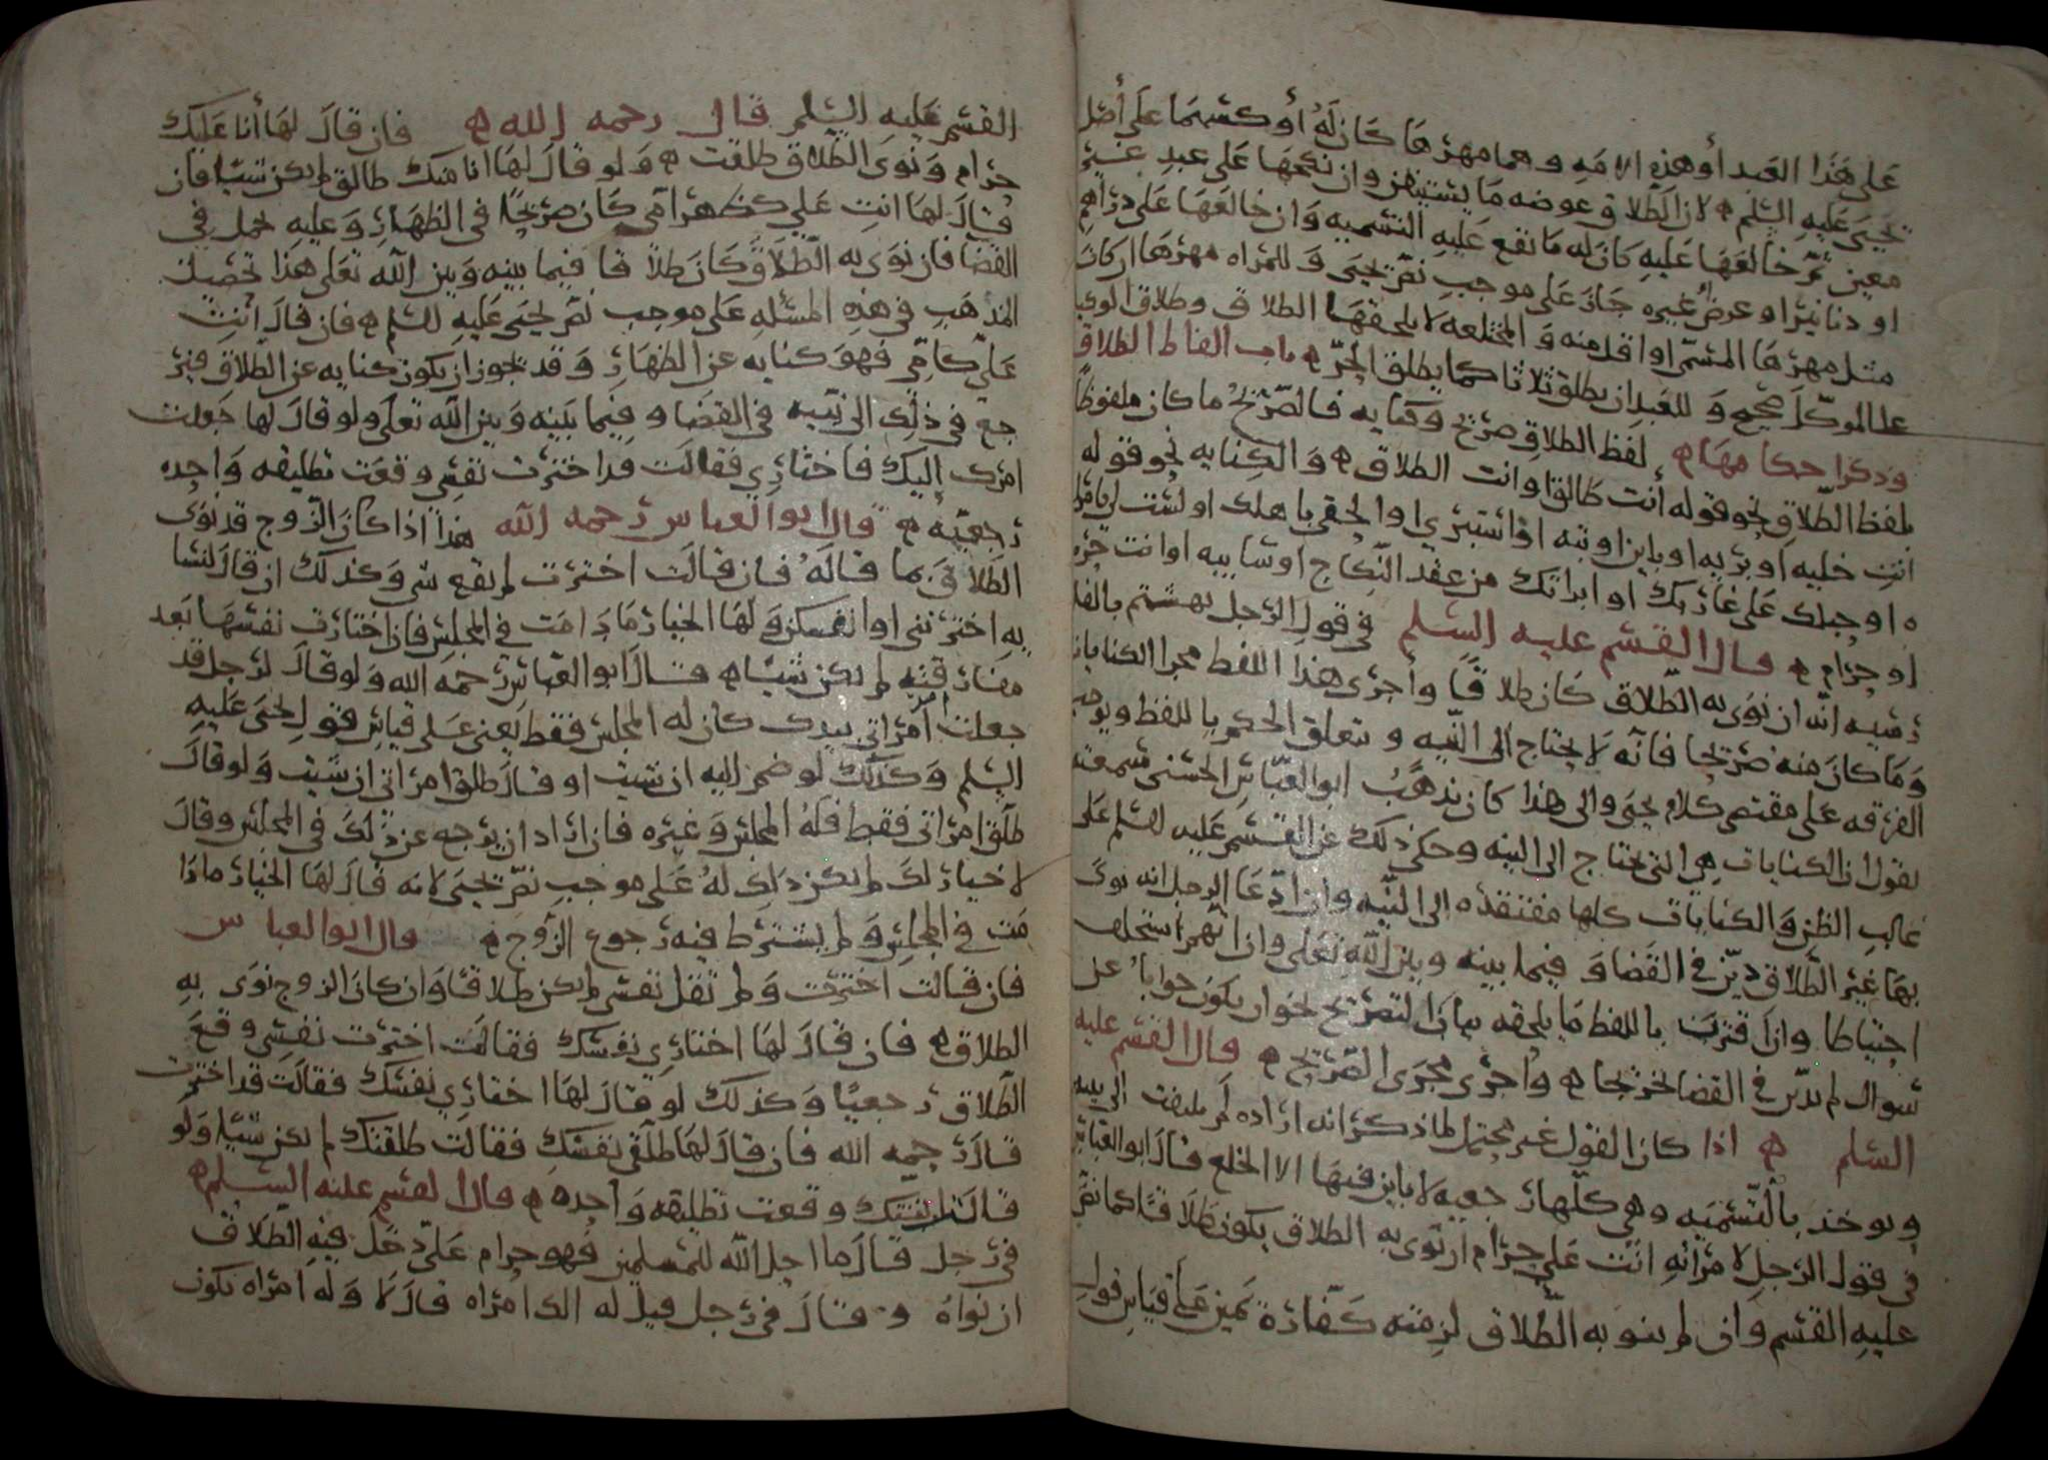 على هذا العبد أو هذه الامه وهما مهرها كان له أو كسهما على أصل
يحيى عليه السلم لان الطلاق وعوضه ما يستبهن وان نكحها على عبد بعينه
معين ثم خالعها عليه كان له ما تقع عليه التسميه وان خالعها على دراهم
او دنانير او عرض غيره جاز على موجب نص يحيى وللمراه مهرها ان كان
مثل مهرها المسمى او اقل منه والمختلعه لا يلحقها الطلاق وطلاق الوكيل
على الموكل صحيح وللعبد ان يطلق ثلاثا كما يطلق الحر باب الفاظ الطلاق
وذكر احكامها لفظ الطلاق صريح وكنايه فالصريح ما كان ملفوظا
بلفظ الطلاق نحو قوله أنت طالق او انت الطلاق والكنايه نحو قوله
انت خليه او بريه او باين او بته او استبري او الحقي باهلك او لست لي بامراه
او حبلك على غاربك او ابراتك من عقد النكاح او سايبه او انت حره
او حرام قال القسم عليه السلم في قول الرجل بهشتم بالفا
رسيه انه ان نوى به الطلاق كان طلاقا وأجرى هذا اللفظ مجرا الكنايات
وما كان منه صريحا فانه لا يحتاج الى النيه و يتعلق الحكم باللفظ ويوجب
الفرقه على مقتضى كلام يحيى والى هذا كان يذهب ابو العباس الحسني سمعته
يقول ان الكنايات هي التي تحتاج الى النيه وحكى ذلك عن القسم عليه السلم على
غالب الظن والكنايات كلها مفتقده الى النيه وان ادعا الرجل انه نوى
بها غير الطلاق دين في القضا وفيما بينه وبين الله تعلى وان اتهم استحلف
احتياطا وان اقترن باللفظ ما يلحقه بهاذا التصريح نحو ان يكون جوابا على
سوال لم يدين في القضا تحريجا وأجرى مجرى الصريح قال القسم عليه
السلم اذا كان القول غير محتمل لما ذكر انه اراده لم يلتفت الى نيته
ويوخذ بالتسميه وهي كلها رجعيه لا باين فيها الا الخلع قال ابو العباس
في قول الرجل لامرأته انت علي حرام ان نوى به الطلاق يكون طلاقا كما نص
عليه القسم وان لم ينو به الطلاق لزمته كفارة يمين على قياس قول
القسم عليه السلم قال رحمه الله فان قال لها أنا عليك
حرام ونوى الطلاق طلقت ولو قال لها انا منك طالق لم يكن شيا فان
قال لها انت علي كظهر أمي كان صريحا في الظهار وعليه يحمل في
القضا فان نوى به الطلاق كان طلاقا فيما بينه وبين الله تعلى هذا تحصيل
المذهب في هذه المسئله على موجب نص يحيى عليه السلم فان قال انت
علي كامي فهو كنايه عن الظهار وقد يجوز ان يكون كنايه عن الطلاق فير
جع في ذلك الى نيته في القضا وفيما بينه وبين الله تعلى ولو قال لها جعلت
امرك إليك فاختاري فقالت قد اخترت نفسي وقعت تطليقه واحده
رجعيه قال ابو العباس رحمه الله هذا اذا كان الزوج قد نوى
الطلاق بما قاله فان قالت اخترت لم يقع شي وكذلك ان قال لنسا
يه اخترنني او انفسكن ولها الخيار ما دامت في المجلس فان اختارت نفسها بعد
مفارقته لم يكن شيا قال ابو العباس رحمه الله ولو قال لرجل قد
جعلت أمر امراتي بيدك كان له المجلس فقط يعني على قياس قول يحيى عليه
السلم وكذلك لو ضم اليه ان شيت او قال طلق امراتي ان شيت ولو قال
طلق امراتي فقط فله المجلس وغيره فان اراد ان يرجع عن ذلك في المجلس وقال
لا خيار لك لم يكن ذلك له على موجب نص يحيى لانه قال لها الخيار ما دا
مت في المجلس ولم يشترط فيه رجوع الزوج قال ابو العباس
فان قالت اخترت ولم تقل نفسي لم يكن طلاقا وان كان الزوج نوى به
الطلاق فان قال لها اختاري نفسك فقالت اخترت نفسي وقع
الطلاق رجعيا وكذلك لو قال لها اختاري نفسك فقالت قد اخترت
قال رحمه الله فان قال لها طلقي نفسك فقالت طلقتك لم يكن شيا ولو
قالت وقعت تطليقه واحده قال القسم عليه السلم
في رجل قال ما احل الله للمسلمين فهو حرام علي دخل فيه الطلاق
ان نواه وقال في رجل قيل له الك امراه قال لا وله امراه يكون